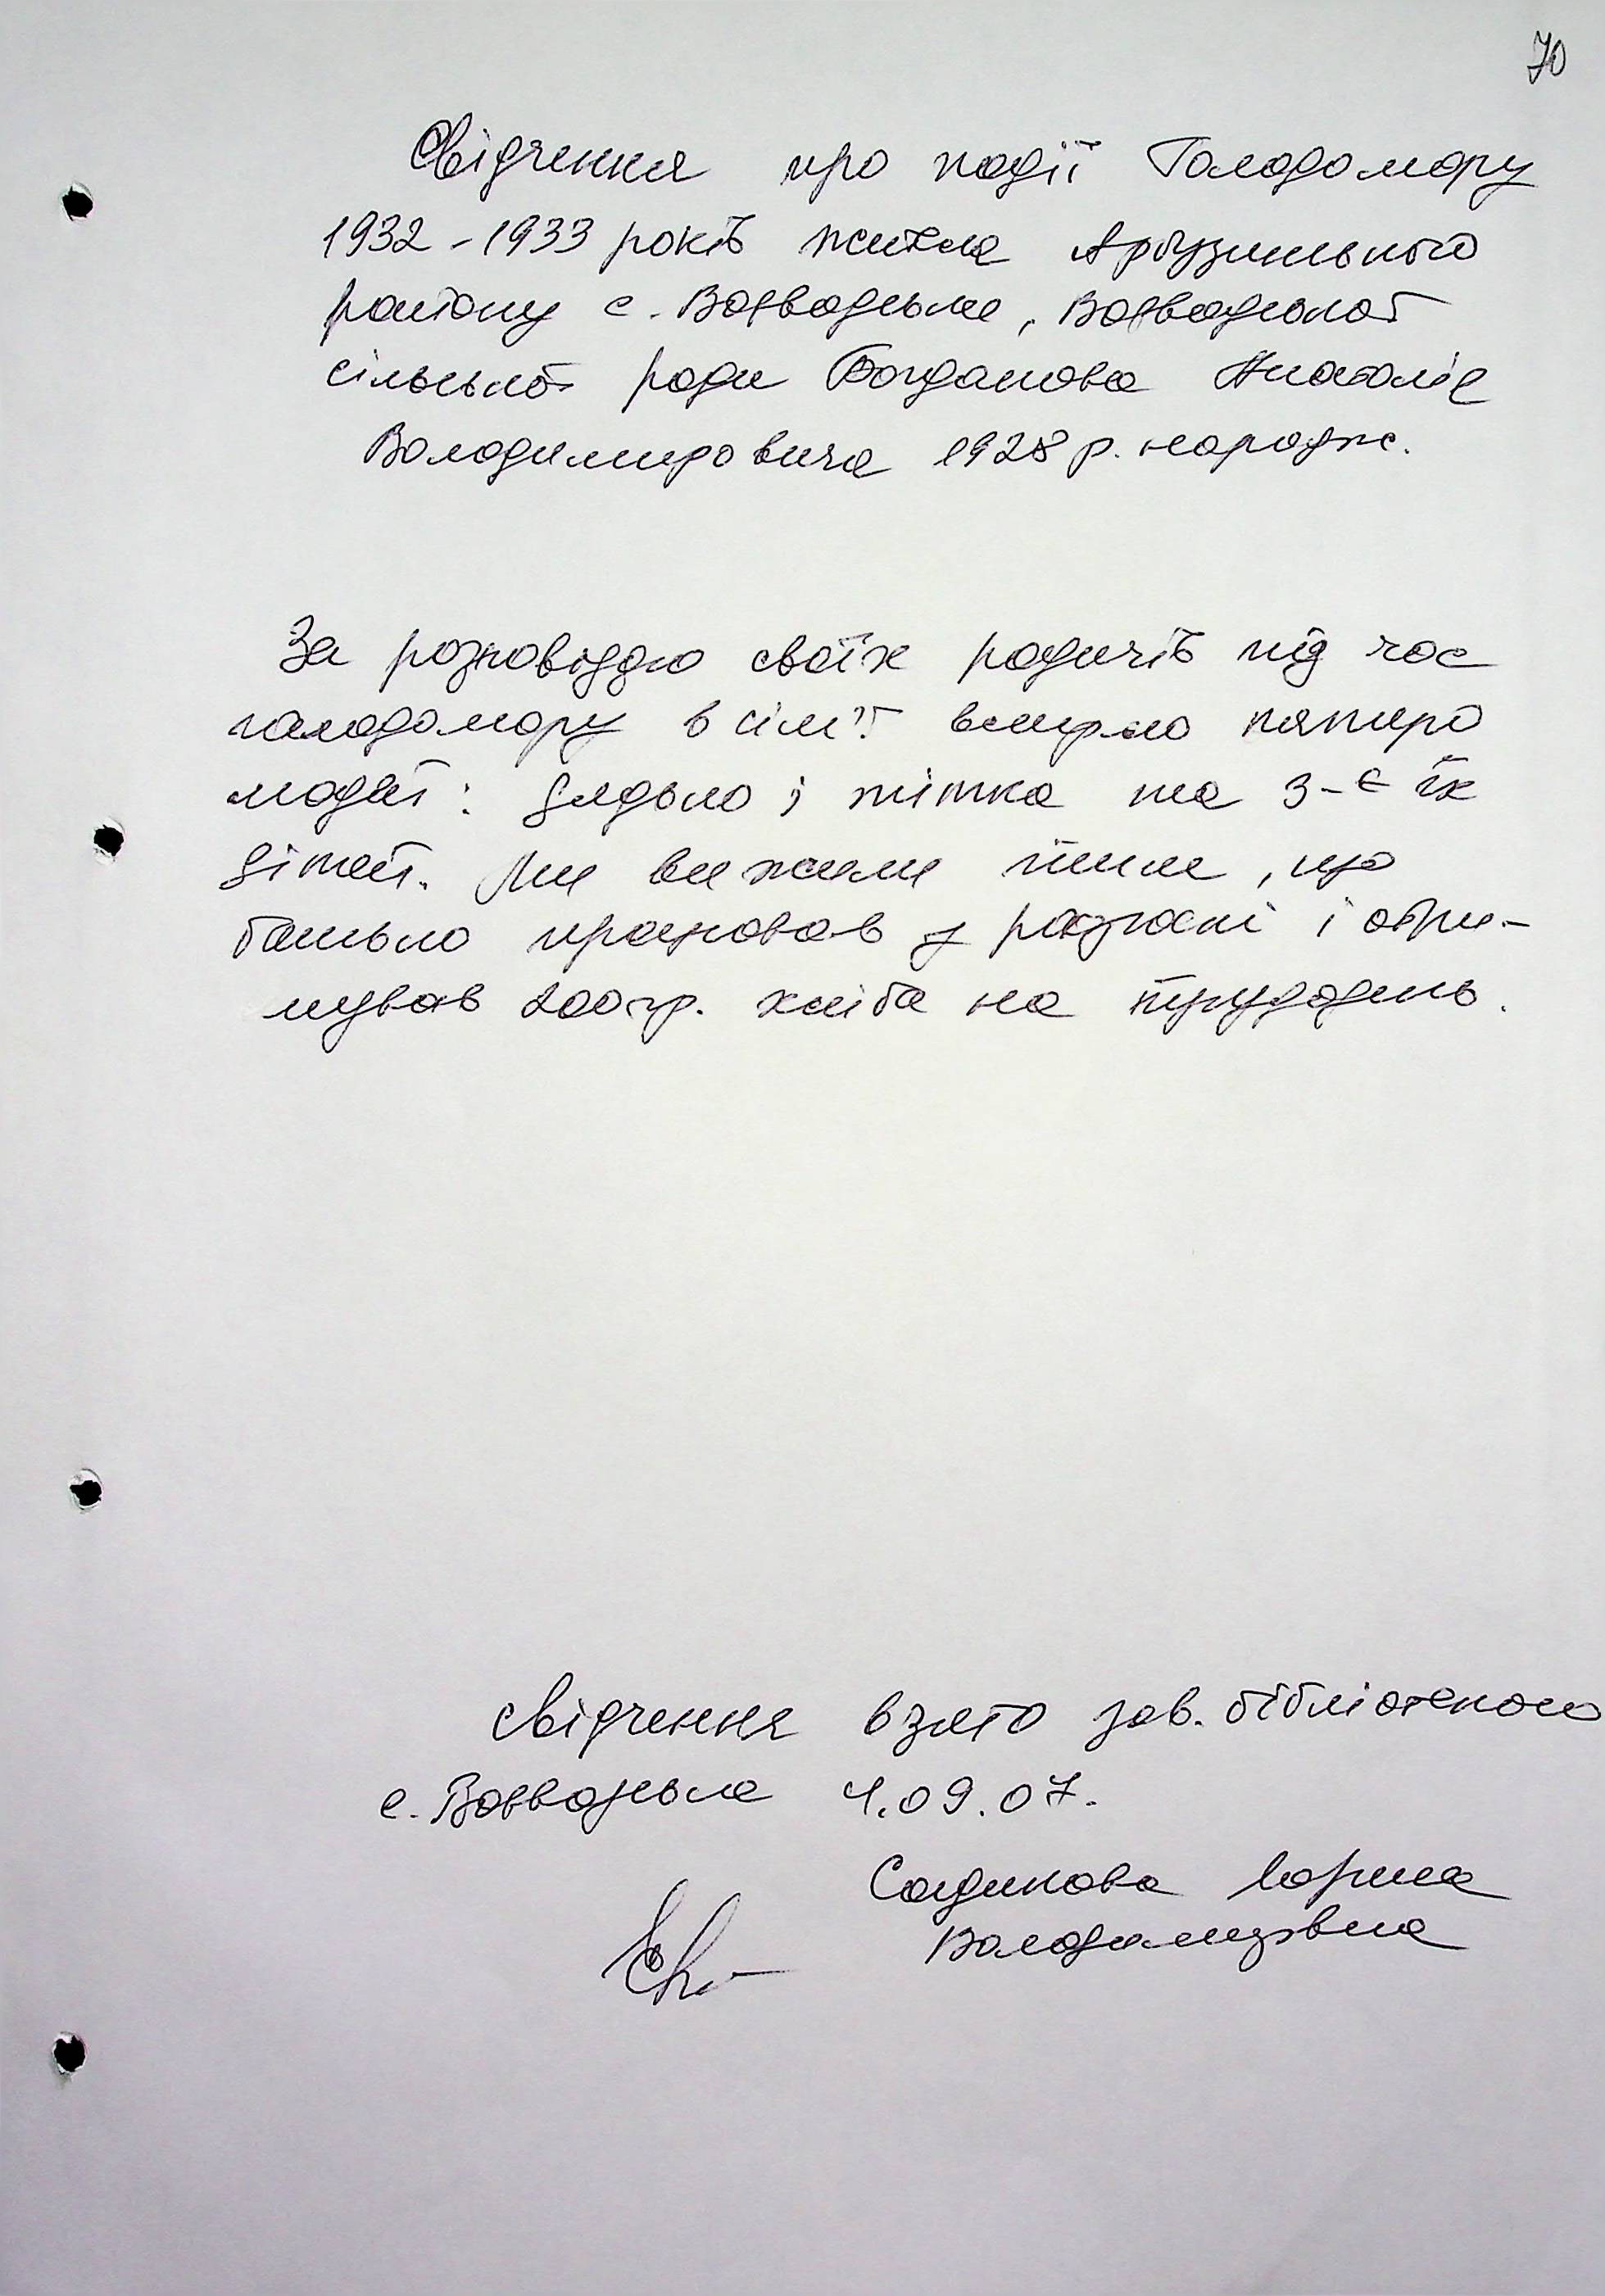 70
Свідчення про події Голодомору
1932-1933 років жителя Арбузинського
району с. Воєводське, Воєводської
сільської ради Богданова Анатолія
Володимировича 1928 р. народж.
За розповіддю своїх родичів під час
голодомору в сім'ї вмерло пятеро
людей: дядько і тітка та 3-є їх
дітей. Ми вижили тим, що
батько працював у радгоспі і отри-
мував 200 гр. хліба на трудодень.
свідчення взято зав. бібліотекою
с. Воєводське 4.09.07.
Садикова Лариса
Володимирівна